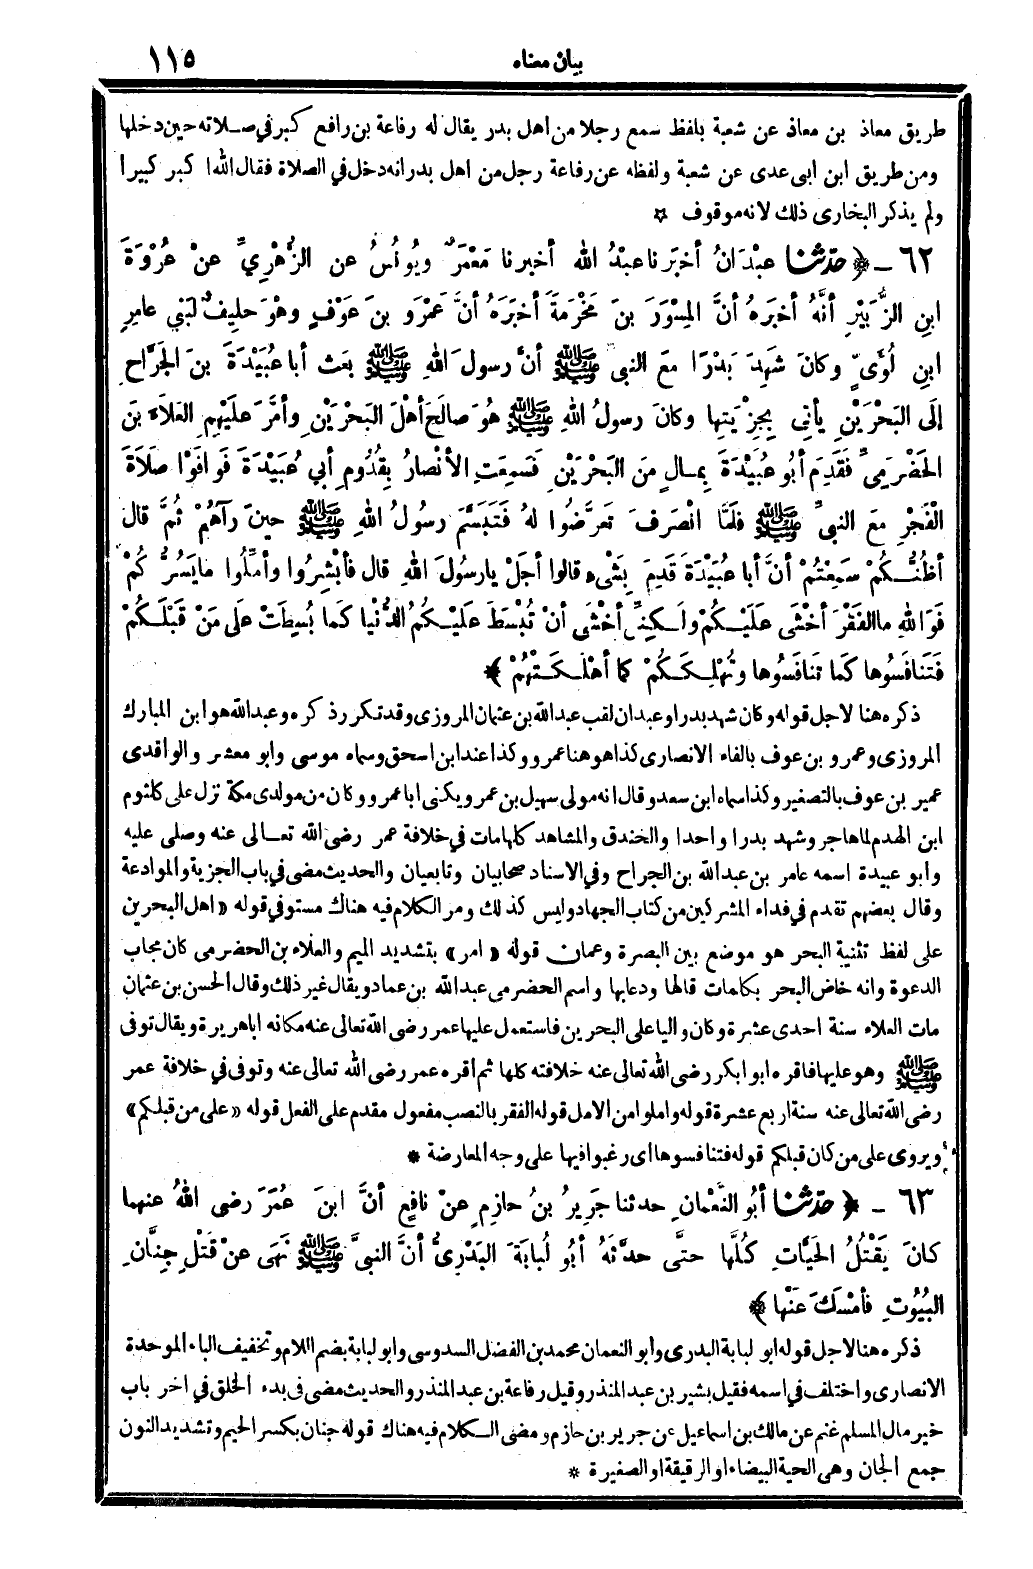 بيان معناه ١١٥
طريق معاذ بن معاذ عن شعبة بلفظ سمع رجلا من اهل بدر يقال له رفاعة بن رافع كبر في صلاته حين دخلها
ومن طريق ابن ابى عدى عن شعبة ولفظه عن رفاعة رجل من اهل بدر انه دخل في الصلاة فقال الله ا كبر كبيرا
ولم يذكر البخارى ذلك لانه موقوف ☆
٦٢ ـ ﴿ حَدَّثَنَا عبْدَانُ أخبَرنا عبدُ الله أخبرنا مَعْمَرٌ ويُونُسُ عن الزُّهْرِيِّ عنْ عُرْوَةَ
ابنِ الزُّبَيْرِ أنَّهُ أخبَرَهُ أنَّ المِسْوَرَ بنَ مَخْرَمَةَ أخبَرَهُ أنَّ عَمْرَو بنَ عَوْفٍ وهْوَ حلِيفٌ لِبَنِي عامِرِ
ابنِ لُؤَىٍّ وكانَ شَهِدَ بَدْرًا مَعَ النبيِّ ﷺ أنَّ رسولَ اللهِ ﷺ بَعَثَ أبا عُبَيْدَةَ بنَ الجَرَّاحِ
إلَى البَحْرَيْنِ يأتِي بِجِزْيَتِها وكانَ رسولُ اللهِ ﷺ هُوَ صالَحَ أهْلَ البَحْرَيْنِ وأمَّرَ عَلَيْهِمِ العَلاَءَ بنَ
الحَضْرَمِيِّ فَقَدِمَ أبُو عُبَيْدَةَ بِمـالٍ مِنَ البَحْرَيْنِ فَسَمِعَتِ الأنْصارُ بِقُدُومِ أبي عُبَيْدَةَ فَوافَوْا صلاَةَ
الْفَجْرِ مَعَ النبيِّ ﷺ فلَمَّا انْصَرفَ تَعرَّضُوا لهُ فَتَبَسَّمَ رسُولُ اللهِ ﷺ حينَ رآهُمْ ثُمَّ قال
أظُنُّـكُمْ سَمِعْتُمْ أنَّ أبا عُبَيْدَةَ قَدِمَ بِشَىْءٍ قالوا أجَلْ يا رسُولَ اللهِ قال فأبْشِرُوا وأمِّلُوا ما يَسُرُّ كُمْ
فَوَ اللهِ ما الفَقْرَ أخْشَى عَلَيْـكُمْ ولَـكِنِّي أخْشَى أنْ تُبْسَطَ علَيْـكُمُ الدُّنْيا كما بُسِطَتْ علَى مَنْ قَبْلَـكُمْ
فَتَنافَسُوها كَما تنافَسُوها وتُهْلِـكَـكُمْ كما أهْلَـكَـتْهُمْ ﴾
ذكره هنا لاجل قوله وكان شهد بدرا وعبدان لقب عبدالله بن عثمان المروزى وقد تكرر ذ كره وعبدالله هو ابن المبارك
المروزى وعمرو بن عوف بالفاء الانصارى كذا هو هنا عمرو وكذا عند ابن اسحق وسماه موسى وابو معشر والواقدى
عمير بن عوف بالتصغير وكذا سماه ابن سعد وقال انه مولى سهيل بن عمرو يكنى ابا عمرو وكان من مولدى مكة نزل على كلثوم
ابن الهدم لما هاجر وشهد بدرا واحدا والخندق والمشاهد كلها مات في خلافة عمر رضى الله تعـالى عنه وصلى عليه
وابو عبيدة اسمه عامر بن عبدالله بن الجراح وفي الاسناد صحابيان وتابعيان والحديث مضى في باب الجزية والموادعة
وقال بعضهم تقدم في فداء المشركين من كتاب الجهاد وليس كذلك ومر الكلام فيه هناك مستوفي قوله «اهل البحرين
على لفظ تثنية البحر هو موضع بين البصرة وعمان قوله «امر» بتشديد الميم والعلاء بن الحضرمى كان مجاب
الدعوة وانه خاض البحر بكلمات قالها ودعابها واسم الحضرمى عبد الله بن عماد ويقال غير ذلك وقال الحسن بن عثمان
مات العلاء سنة احدى عشرة وكان واليا على البحرين فاستعمل عليها عمر رضى الله تعالى عنه مكانه ابا هريرة ويقال توفى
ﷺ وهو عليها فاقره ابو ابكر رضى الله تعالى عنه خلافته كلها ثم أقره عمر رضى الله تعالى عنه وتوفى في خلافة عمر
رضى الله تعالى عنه سنة اربع عشرة قوله واملوا من الامل قوله الفقر بالنصب مفعول مقدم على الفعل قوله «على من قبلكم»
ويروى على من كان قبلكم قوله فتنافسوها أى رغبوا فيها على وجه المعارضة *
٦٣ ـ ﴿ حَدَّثَنَا أبُو النُّعْمانِ حدثنا جَرِيرُ بنُ حازِمٍ عنْ نافِعٍ أنَّ ابنَ عُمَرَ رضى اللهُ عنهما
كانَ يَقْتُلُ الحَيَّاتِ كُلَّها حتَّى حدَّثَهُ أبُو لُبابَةَ البَدْرِيُّ أنَّ النبيَّ ﷺ نَهَى عنْ قَتْلِ جِنَّانِ
البُيُوتِ فأمْسَكَ عَنْها ﴾
ذكره هنا لاجل قوله ابو لبابة البدرى وأبو النعمان محمد بن الفضل السدوسى وابو لبابة بضم اللام وتخفيف الباء الموحدة
الانصارى واختلف في اسمه فقيل بشير بن عبد المنذر وقيل رفاعة بن عبد المنذر والحديث مضى فى بدء الخلق في اخر باب
خير مال المسلم غنم عن مالك بن اسماعيل عن جرير بن حازم ومضى الـكلام فيه هناك قوله جنان بكسر الجيم وتشديد النون
جمع الجان وهى الحية البيضاء او الرقيقة او الصغيرة *